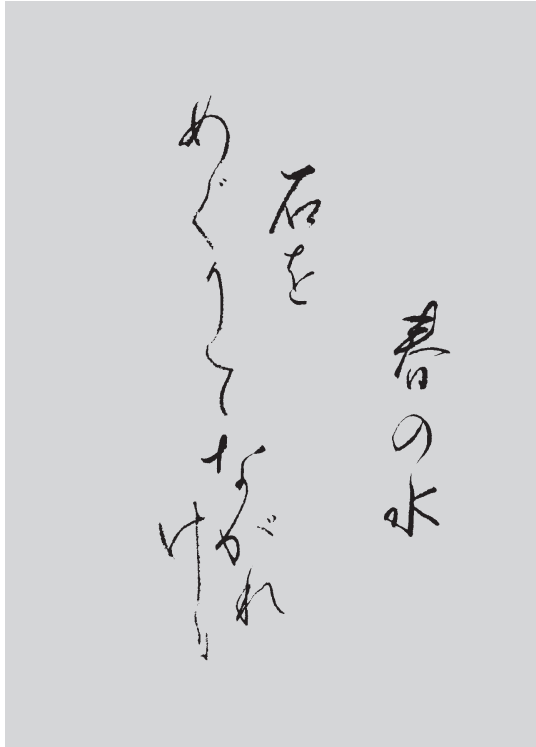 春の水
石を
めぐりて
ながれ
けり